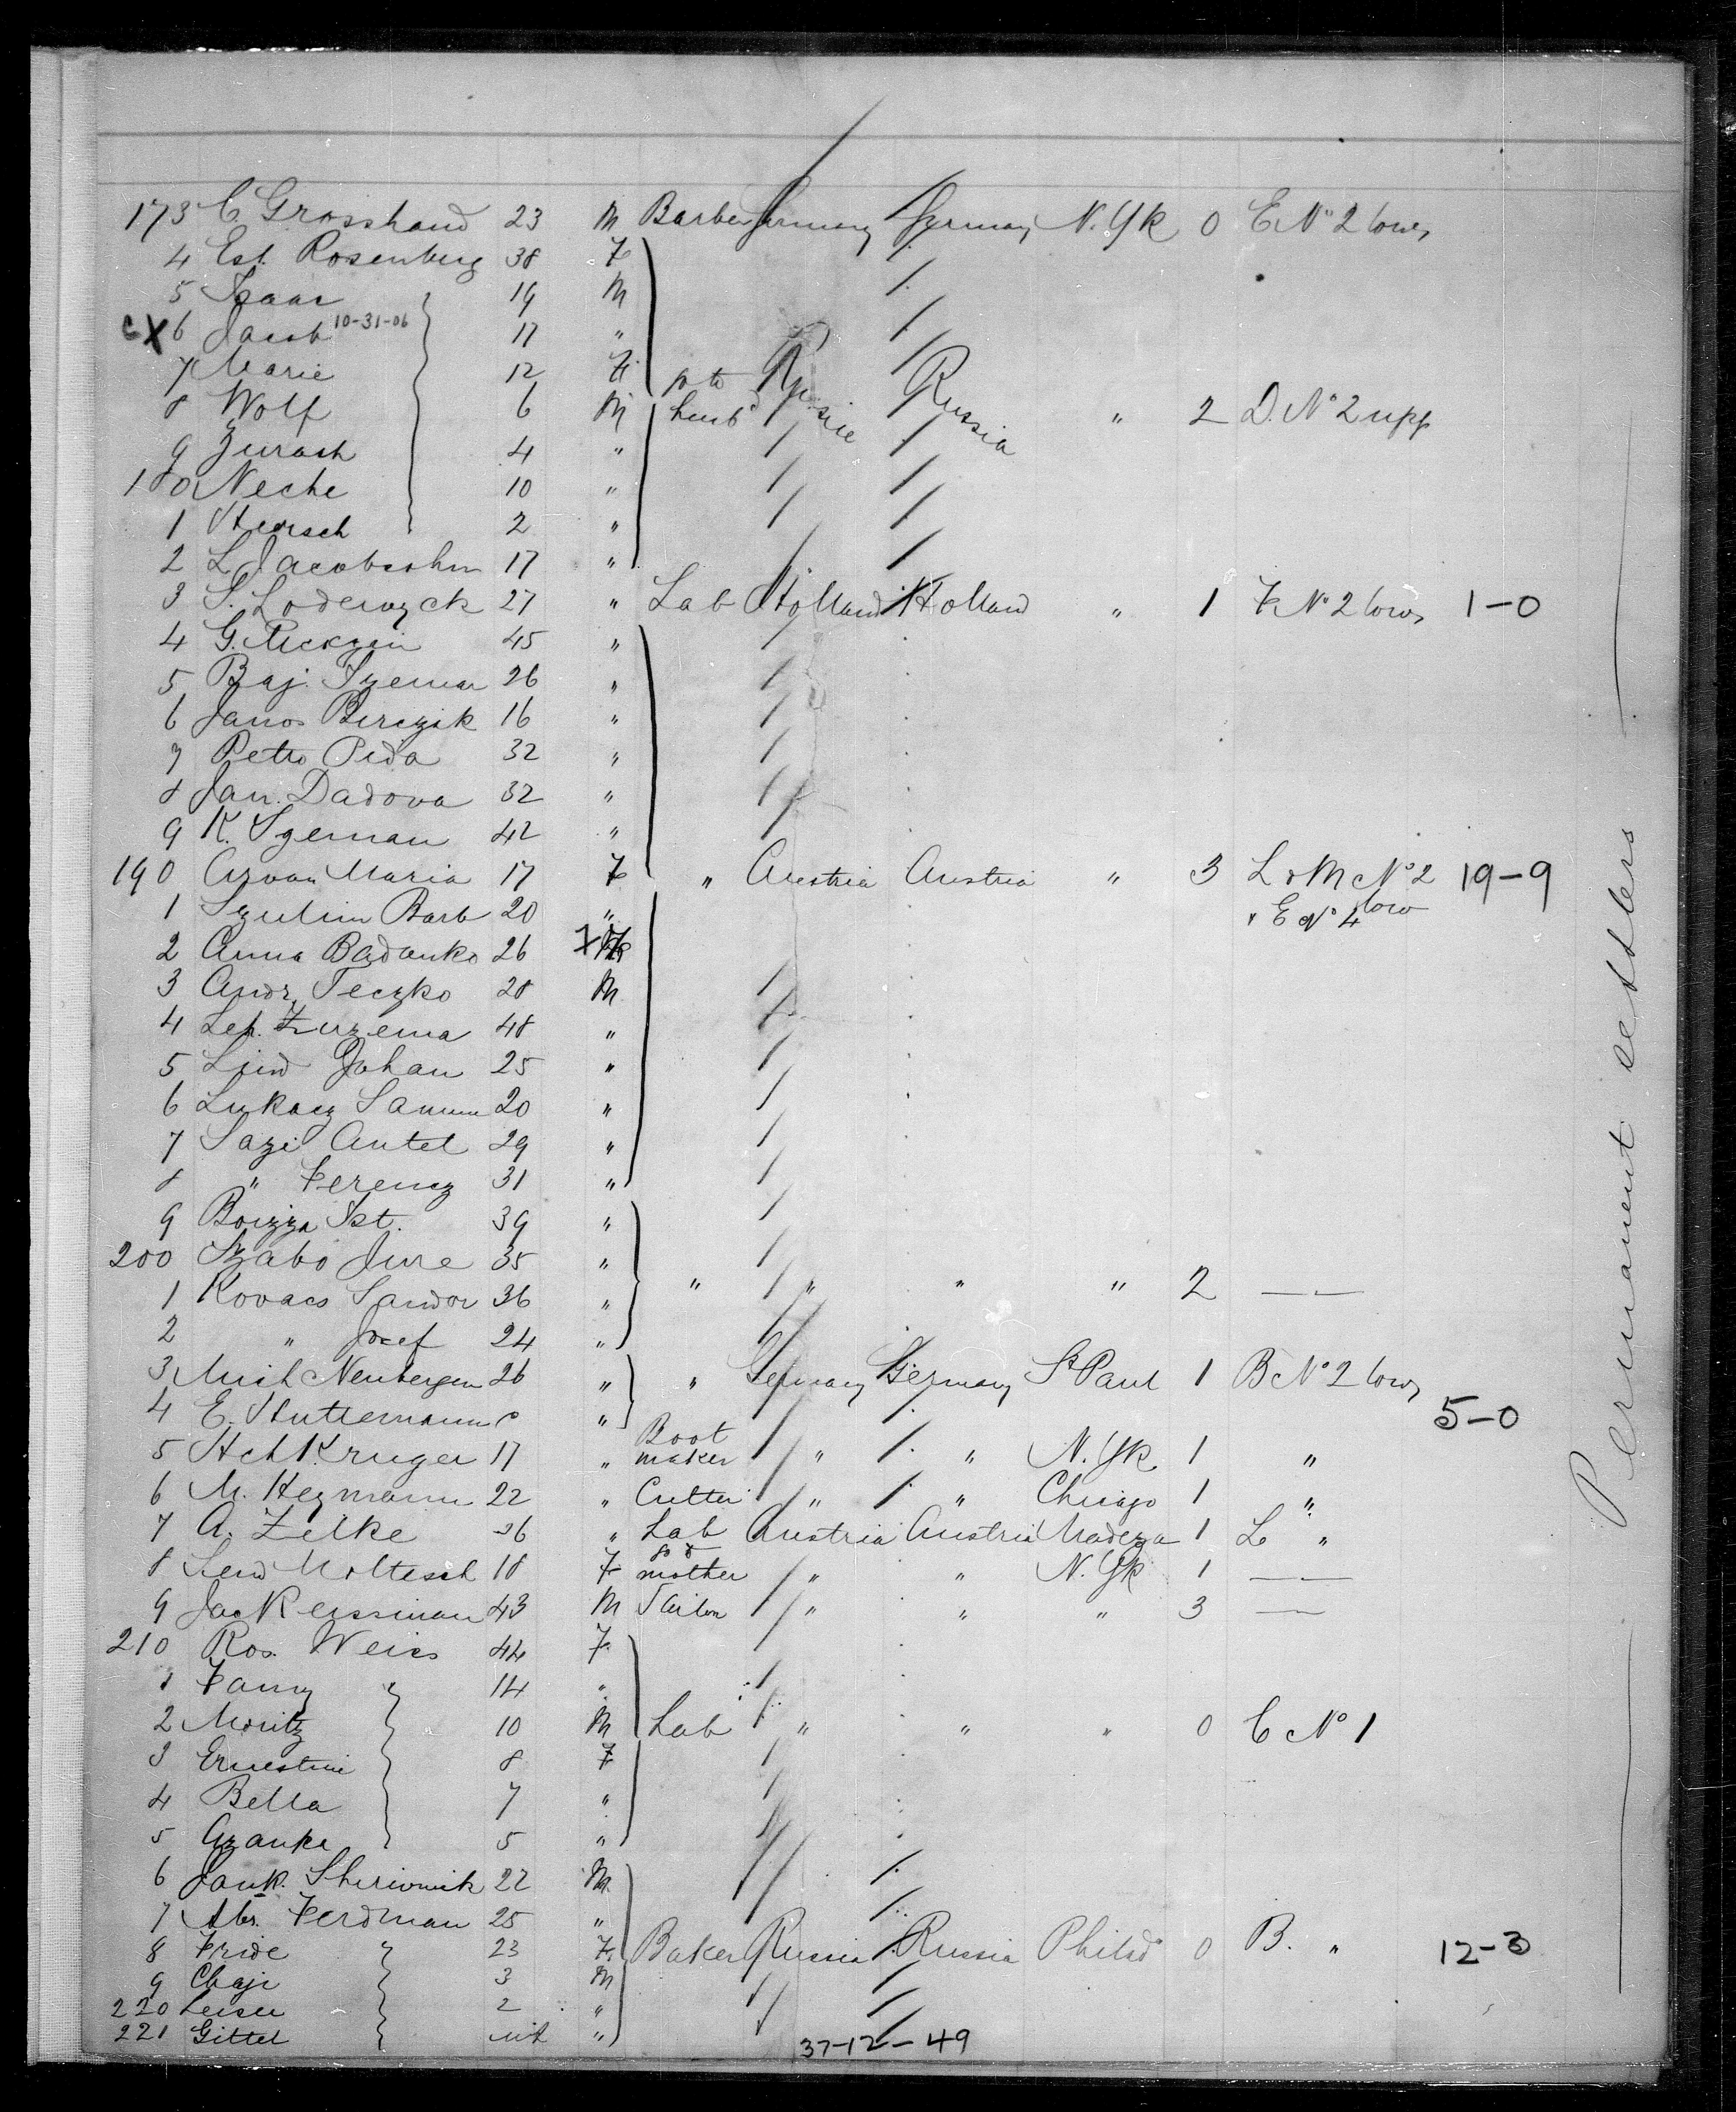 173 C. Grosshand 23 M Barber Germany Germany N. Yk 0 E No 2 lower
4 Est. Rosenberg 38 F
5 Isaac 19 M
cx 6 Jacob 10-31-06 11 "
7 Marie 12 F go to Russia Russia
8 Wolf 6 M husbd " 2 D. No 2 upp
9 4 "
180 Neche 10 "
1 Hersch 2 "
2 L. Jacobsohn 17 "
3 S. Loderwyck 27 " Lab Holland Holland " 1 F No 2 lower 1-0
4 G. 45 "
5 Baj. 26 "
6 Janos Berczik 16 "
7 Petro Pida 32 "
8 Jan. Dadova 32 "
9 K. Szeman 42 "
190 Maria 17 F " Austria Austria " 3 L & M No 2 19-9
1 Barb 20 " " E No 4 low
2 Anna Badanko 26 F
3 Andr. Teczko 28 M
4 48 "
5 Johan 25 "
6 Lukacz 20 "
7 Sazi Antel 29 "
8 " Ferencz 31 "
9 Ist. 39 "
200 Szabo 35 "
1 Kovacs Sandor 36 " " " " " 2 —
2 " Josef 24 "
3 Neubergen 26 " " Germany Germany St Paul 1 B No 2 lower
4 E. " 5-0
5 Hch Kruger 17 " Boot maker " " N. Yk 1 "
6 M. Heymann 22 " Cutter " " Chicago 1 "
7 A. Zelke 26 " Lab Austria Austria 1 L "
8 Moltesch 18 F go to mother " " N. Yk 1 —
9 Jac Reissman 43 M " " " 3 —
210 Ros. Weiss 44 F
1 Fanny 14 "
2 Moritz 10 M Lab " " " 0 C No 1
3 Ernestine 8 F
4 Bella 7 "
5 5 "
6 Jank. 22 M
7 Abr. Ferdman 25 "
8 Fride 23 F Baker Russia Russia Philad 0 B. " 12-3
9 Chaje 3 M
220 Leiser 2 "
221 Gittel inft "
37-12-49
Permanent settlers